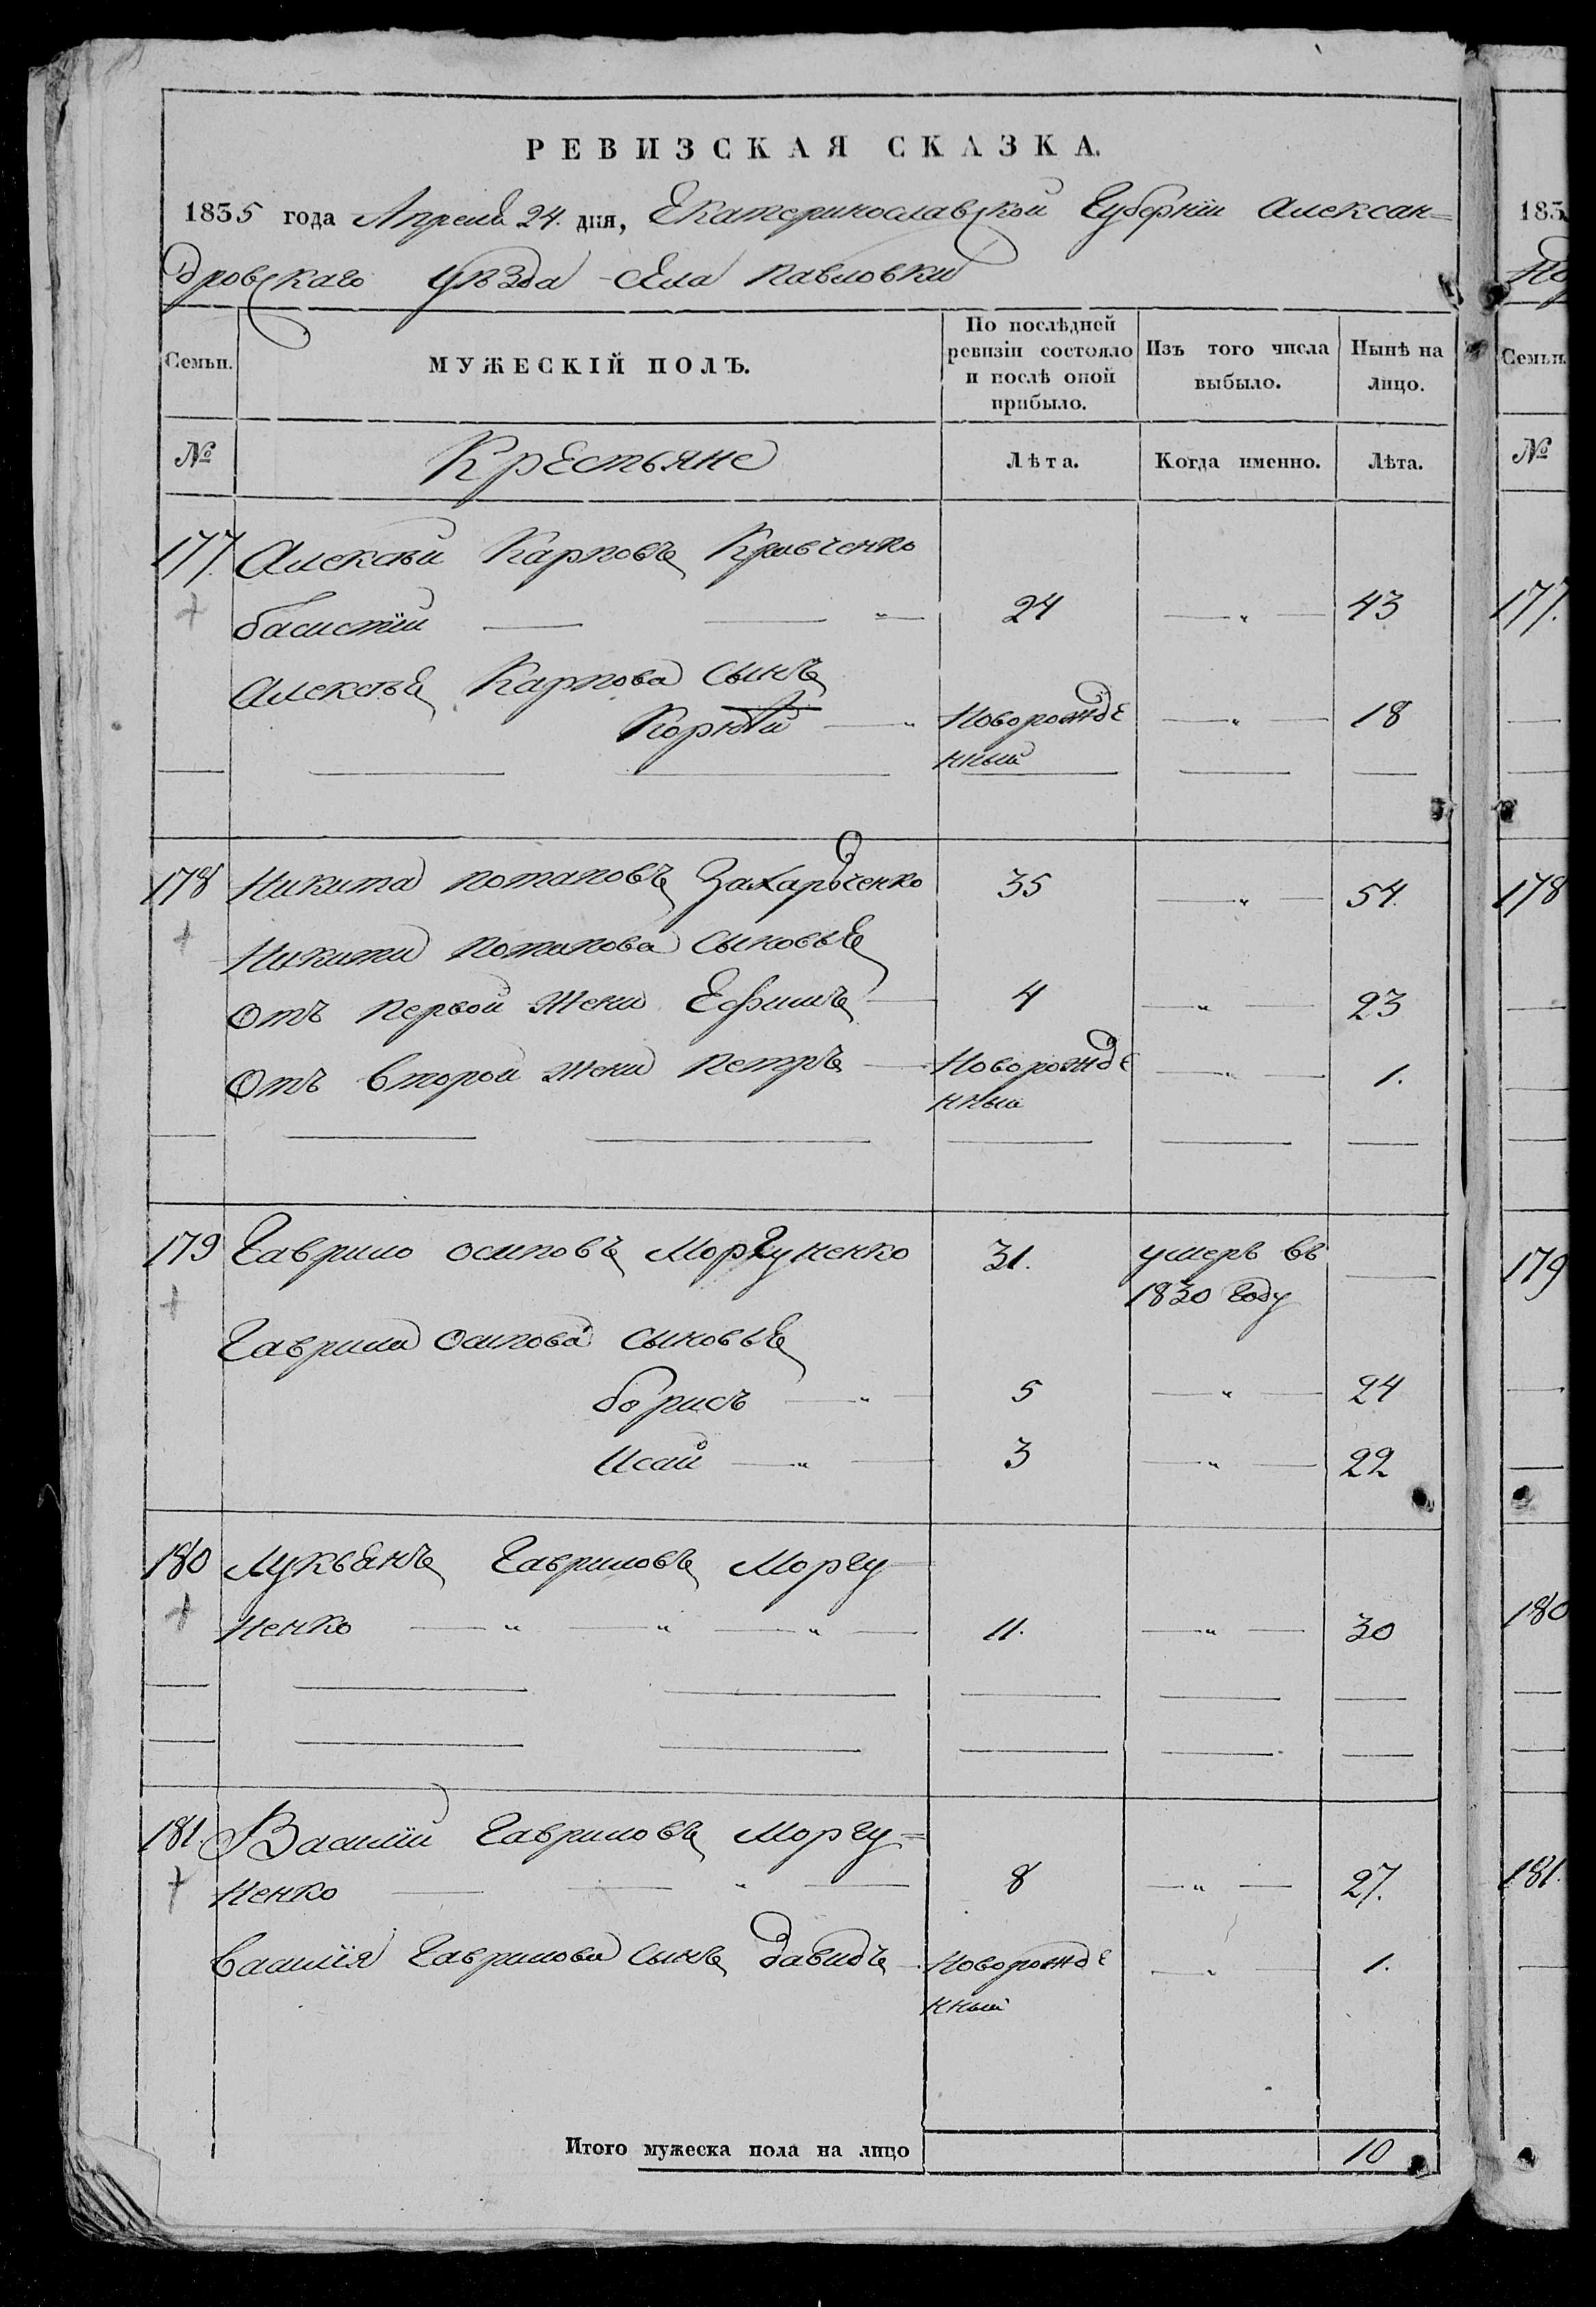 РЕВИЗСКАЯ СКАЗКА.
1835 года Апреля 24. дня, Екатеринославской Губернии Алексан=
дровскаго Уѣзда Села Павловки
Семьи. МУЖЕСКІЙ ПОЛЪ. По послѣдней ревизіи состояло и послѣ оной прибыло. Изъ того числа выбыло. Нынѣ на лицо.
№ Крестьяне Лѣта. Когда именно. Лѣта.
177. Алексѣй Карповъ Кравченко
басистій — — „ — 24 — „ — 43
Алексѣя Карпова сынъ
— „ Новорожде — „ — 18
нный
178 Никита Потаповъ Захарьченко 35 — „ — 54.
Никиты Потапова сыновья
Отъ первой жены Ефимъ — 4 — „ — 23
Отъ второй жены Петръ — Новорожде — „ — 1.
нный
179 Гаврило Осиповъ Моргуненко 31. умеръ въ —
1830 году
Гаврила Осипова сыновья
борисъ — „ — 5 — „ — 24
Исай — „ — 3 — „ — 22
180 Лукьянъ Гавриловъ Моргу
ненко — „ — „ — „ — 11. — „ — 30
181. Василій Гавриловъ Моргу=
ненко — — „ — 8 — „ — 27.
Василія Гаврилова сынъ Давидъ Новорожде — „ — 1.
нный
Итого мужеска пола на лицо 10
183
Но
Семьи.
№
177.
178
179
180
181.